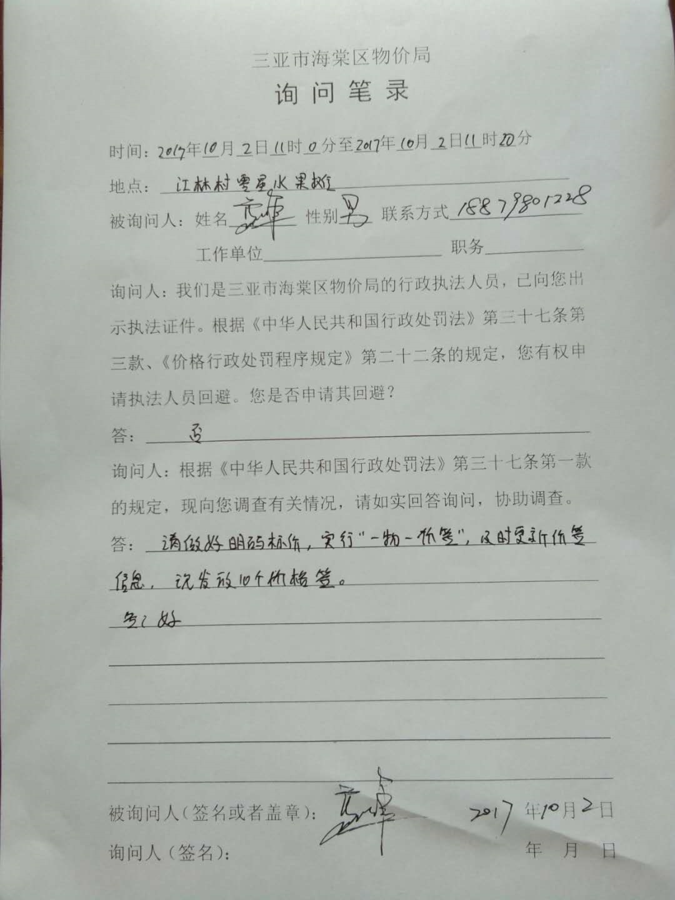 三亚市海棠区物价局
询问笔录
时间：2017年10月2日11时0分至2017年10月2日11时20分
地点：江林村零星水果摊
被询问人：姓名 性别男 联系方式18879801228
工作单位 职务
询问人：我们是三亚市海棠区物价局的行政执法人员，已向您出
示执法证件。根据《中华人民共和国行政处罚法》第三十七条第
三款、《价格行政处罚程序规定》第二十二条的规定，您有权申
请执法人员回避。您是否申请其回避？
答：否
询问人：根据《中华人民共和国行政处罚法》第三十七条第一款
的规定，现向您调查有关情况，请如实回答询问，协助调查。
答：请做好明码标价，实行"一物一价签"，及时更新价签
信息，现发放10个价格签。
答：好
被询问人（签名或者盖章）： 2017年10月2日
询问人（签名）： 年 月 日